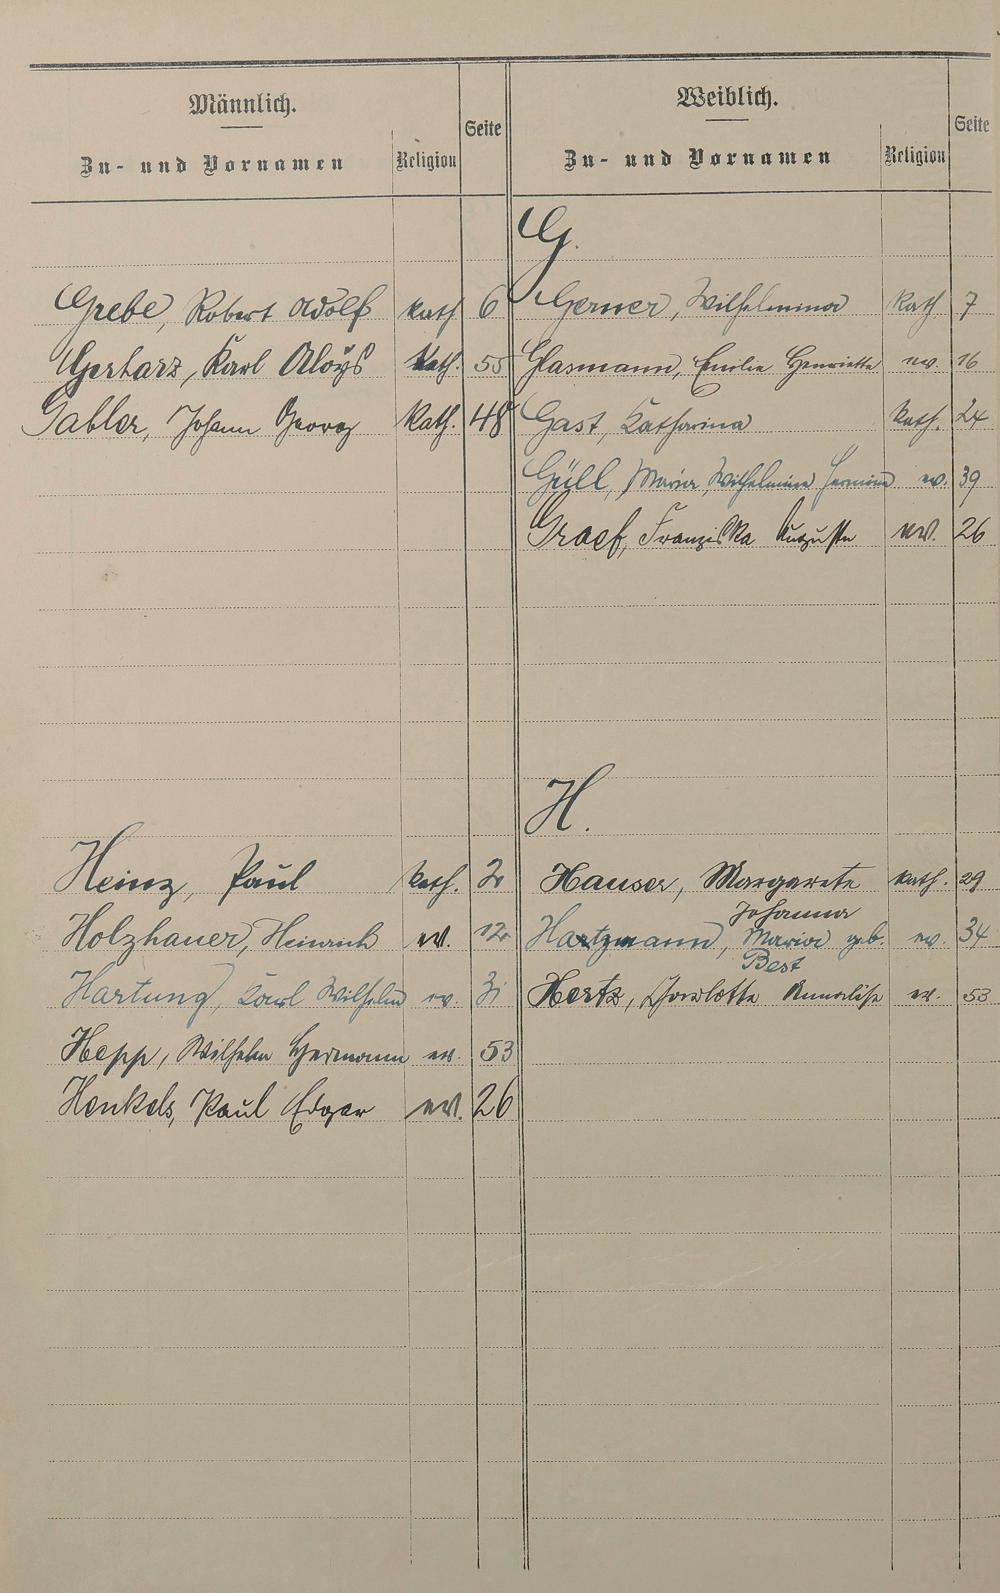 Männlich.
Zu- und Vornamen Religion Seite
Weiblich.
Zu- und Vornamen Religion Seite
G.
Grebe, Robert Adolf kath 6
Gerharz, Karl Aloÿs kath. 55
Gabler, Johann Georg kath. 48
Gerner, Wilhelmina kath 7
Glasmann, Emilie Henriette ev. 16
Gast, Katharina kath. 24
Güll, Maria, Wilhelmine Hermine ev. 39
Graef, Franziska Auguste ev. 26
H.
Heinz, Paul kath. 2
Holzhauer, Heinrich ev. 12
Hartung, Karl Wilhelm ev. 31
Hepp, Wilhelm Hermann ev. 53
Henkels, Paul Edgar ev. 26
Hauser, Margarete kath. 29
Johanna
Hartzmann, Maria geb. ev. 34
Best
Hertz, Charlotte Annalise ev. 53